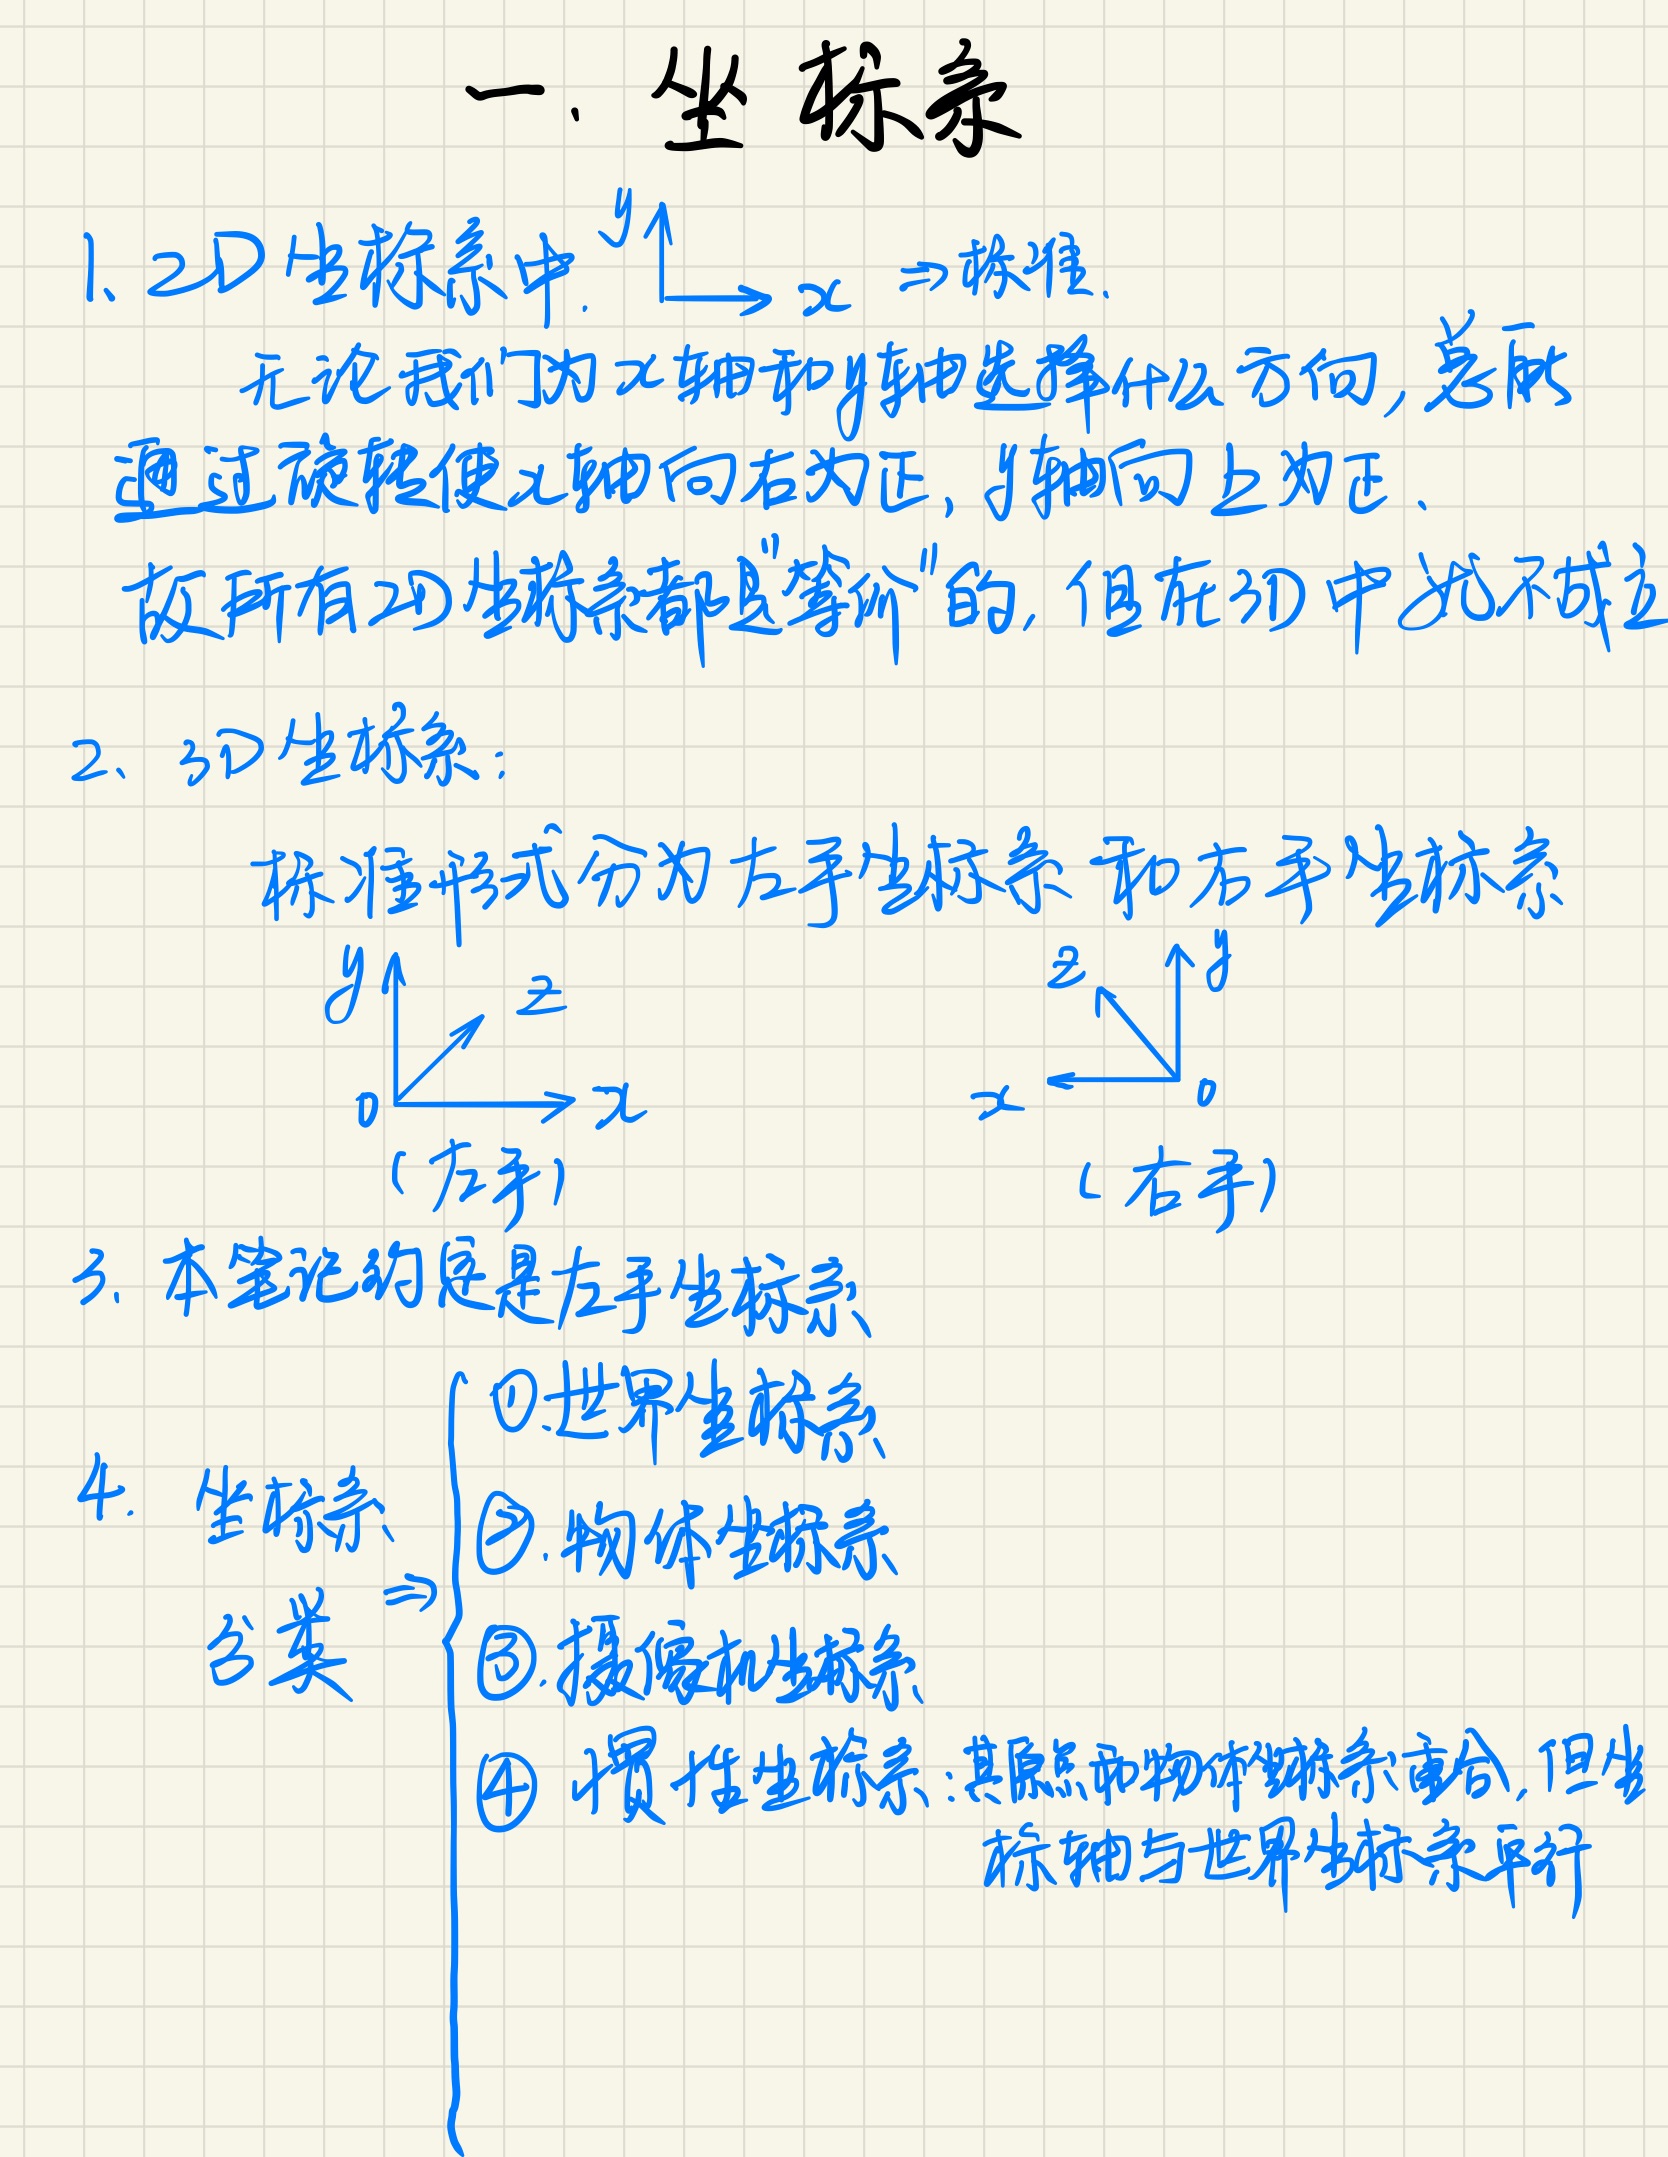 一. 坐标系
1、2D坐标系中. y x ⇒标准.
无论我们为x轴和y轴选择什么方向,总能
通过旋转使x轴向右为正,y轴向上为正、
故所有2D坐标系都是"等价"的,但在3D中就不成立
2、3D坐标系:
标准形式分为左手坐标系和右手坐标系
y z 0 x
z y x 0
(左手) (右手)
3. 本笔记约定是左手坐标系
4. 坐标系
分类 ⇒
①.世界坐标系
②.物体坐标系
③.摄像机坐标系
④ 惯性坐标系:其原点和物体坐标系重合,但坐
标轴与世界坐标系平行